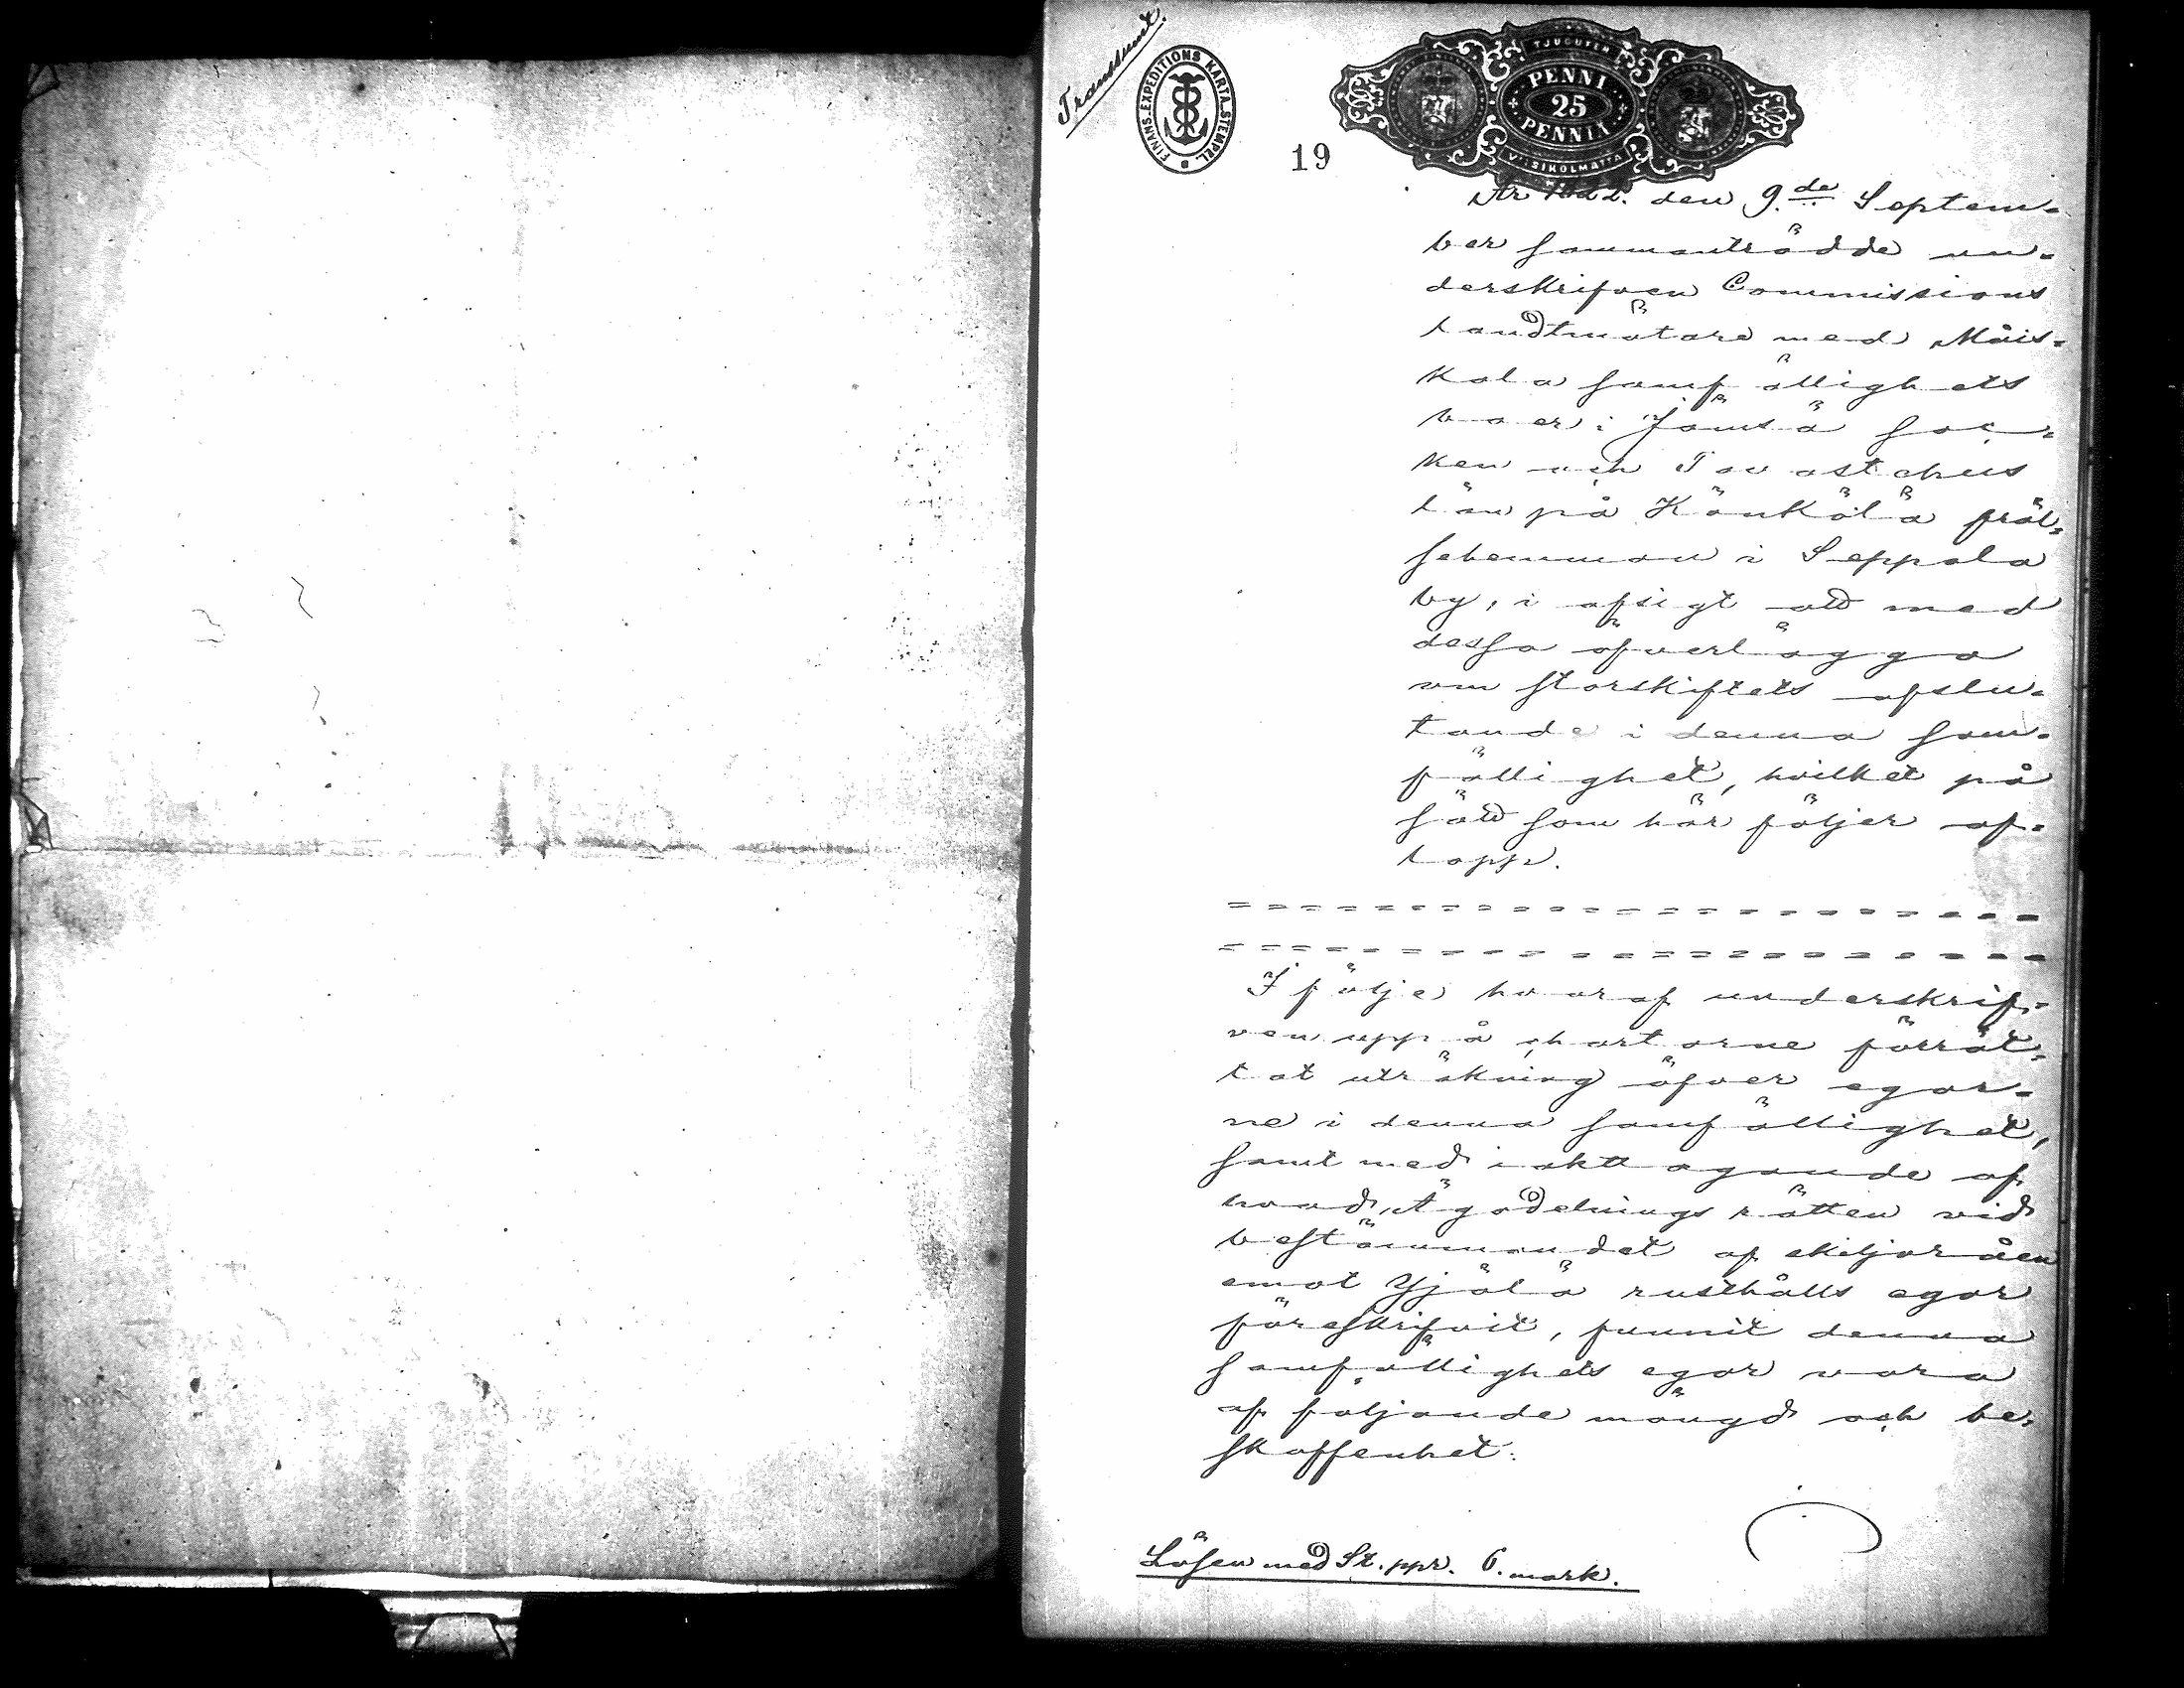 Transsumt.
FINANS. EXPEDITIONS KARTA. STEMPEL.
TJUGUFEM
PENNI
25
PENNIÄ
VIISIKOLMATTA
19
År 1822. den 9.de Septem-
ber sammanträdde un-
derskrifven Commissions
Landtmätare med Måis-
kala samfällighets
boer i Jämsä soc-
ken och Tavastehus
län på Könkölä fräl-
sehemman i Seppola
by, i afsigt att med
dessa öfverlägga
om storskiftets afslu-
tande i denna sam-
fällighet, hvilket på
sätt som här följer af-
lopp.
I följe hvaraf underskrif-
ven uppå chartorne förrät-
tat uträkning öfver egor-
ne i denna samfällighet,
samt med iakttagande af
hvad Ägodelningsrätten vid
bestämmandet af skiljoråen
emot Yjälä rusthålls egor
föreskrifvit, funnit denna
samfällighets egor vara
af följande mängd och be-
skaffenhet:
Lösen med St. ppr. 6. mark.